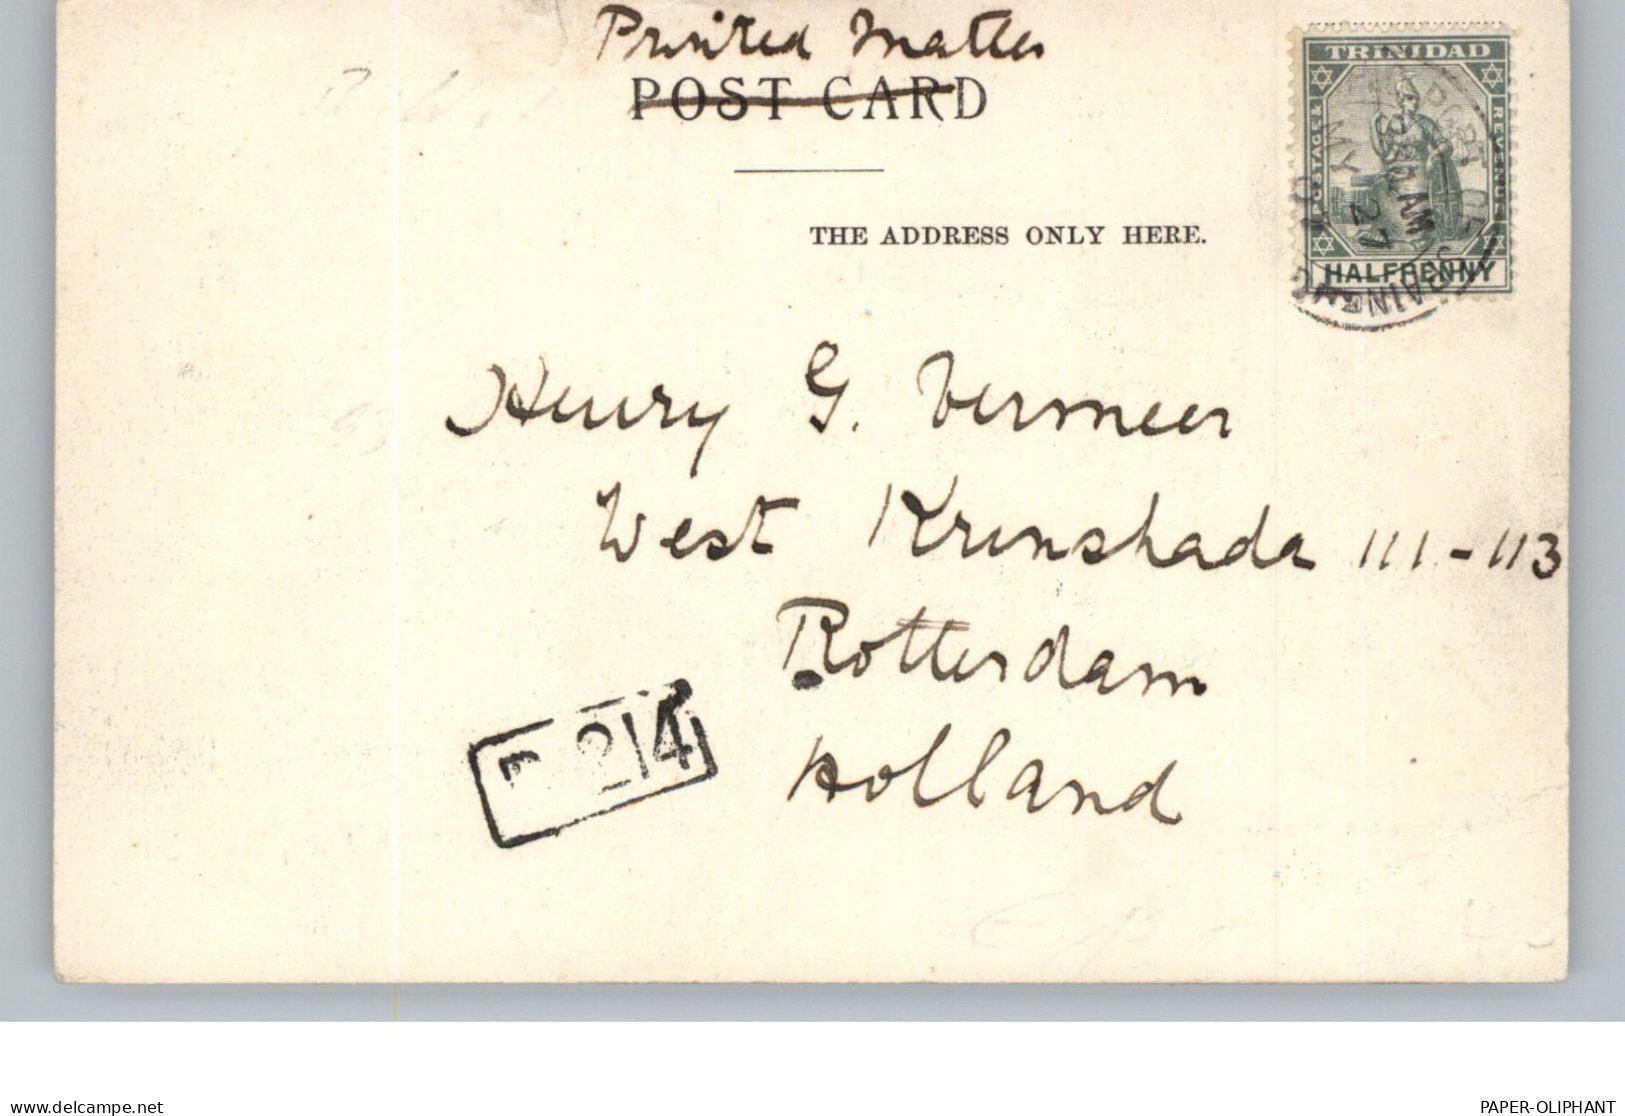 Printed Matter
POST CARD
THE ADDRESS ONLY HERE.
TRINIDAD
POSTAGE & REVENUE
HALFPENNY
PORT OF SPAIN
MY 27
Henry G. Vermeer
West Krunshada 111-113
Rotterdam
Holland
214
www.delcampe.net
PAPER-OLIPHANT